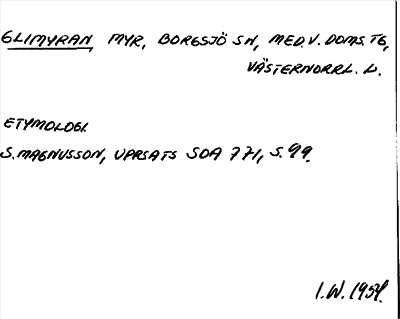 GLIMYRAN, MYR, BORGSJÖ SN, MED.V. DOMS. TG,
VÄSTERNORRL. L.
ETYMOLOGI.
S. MAGNUSSON, UPPSATS SOA 771, S. 99.
I.W. 1954.